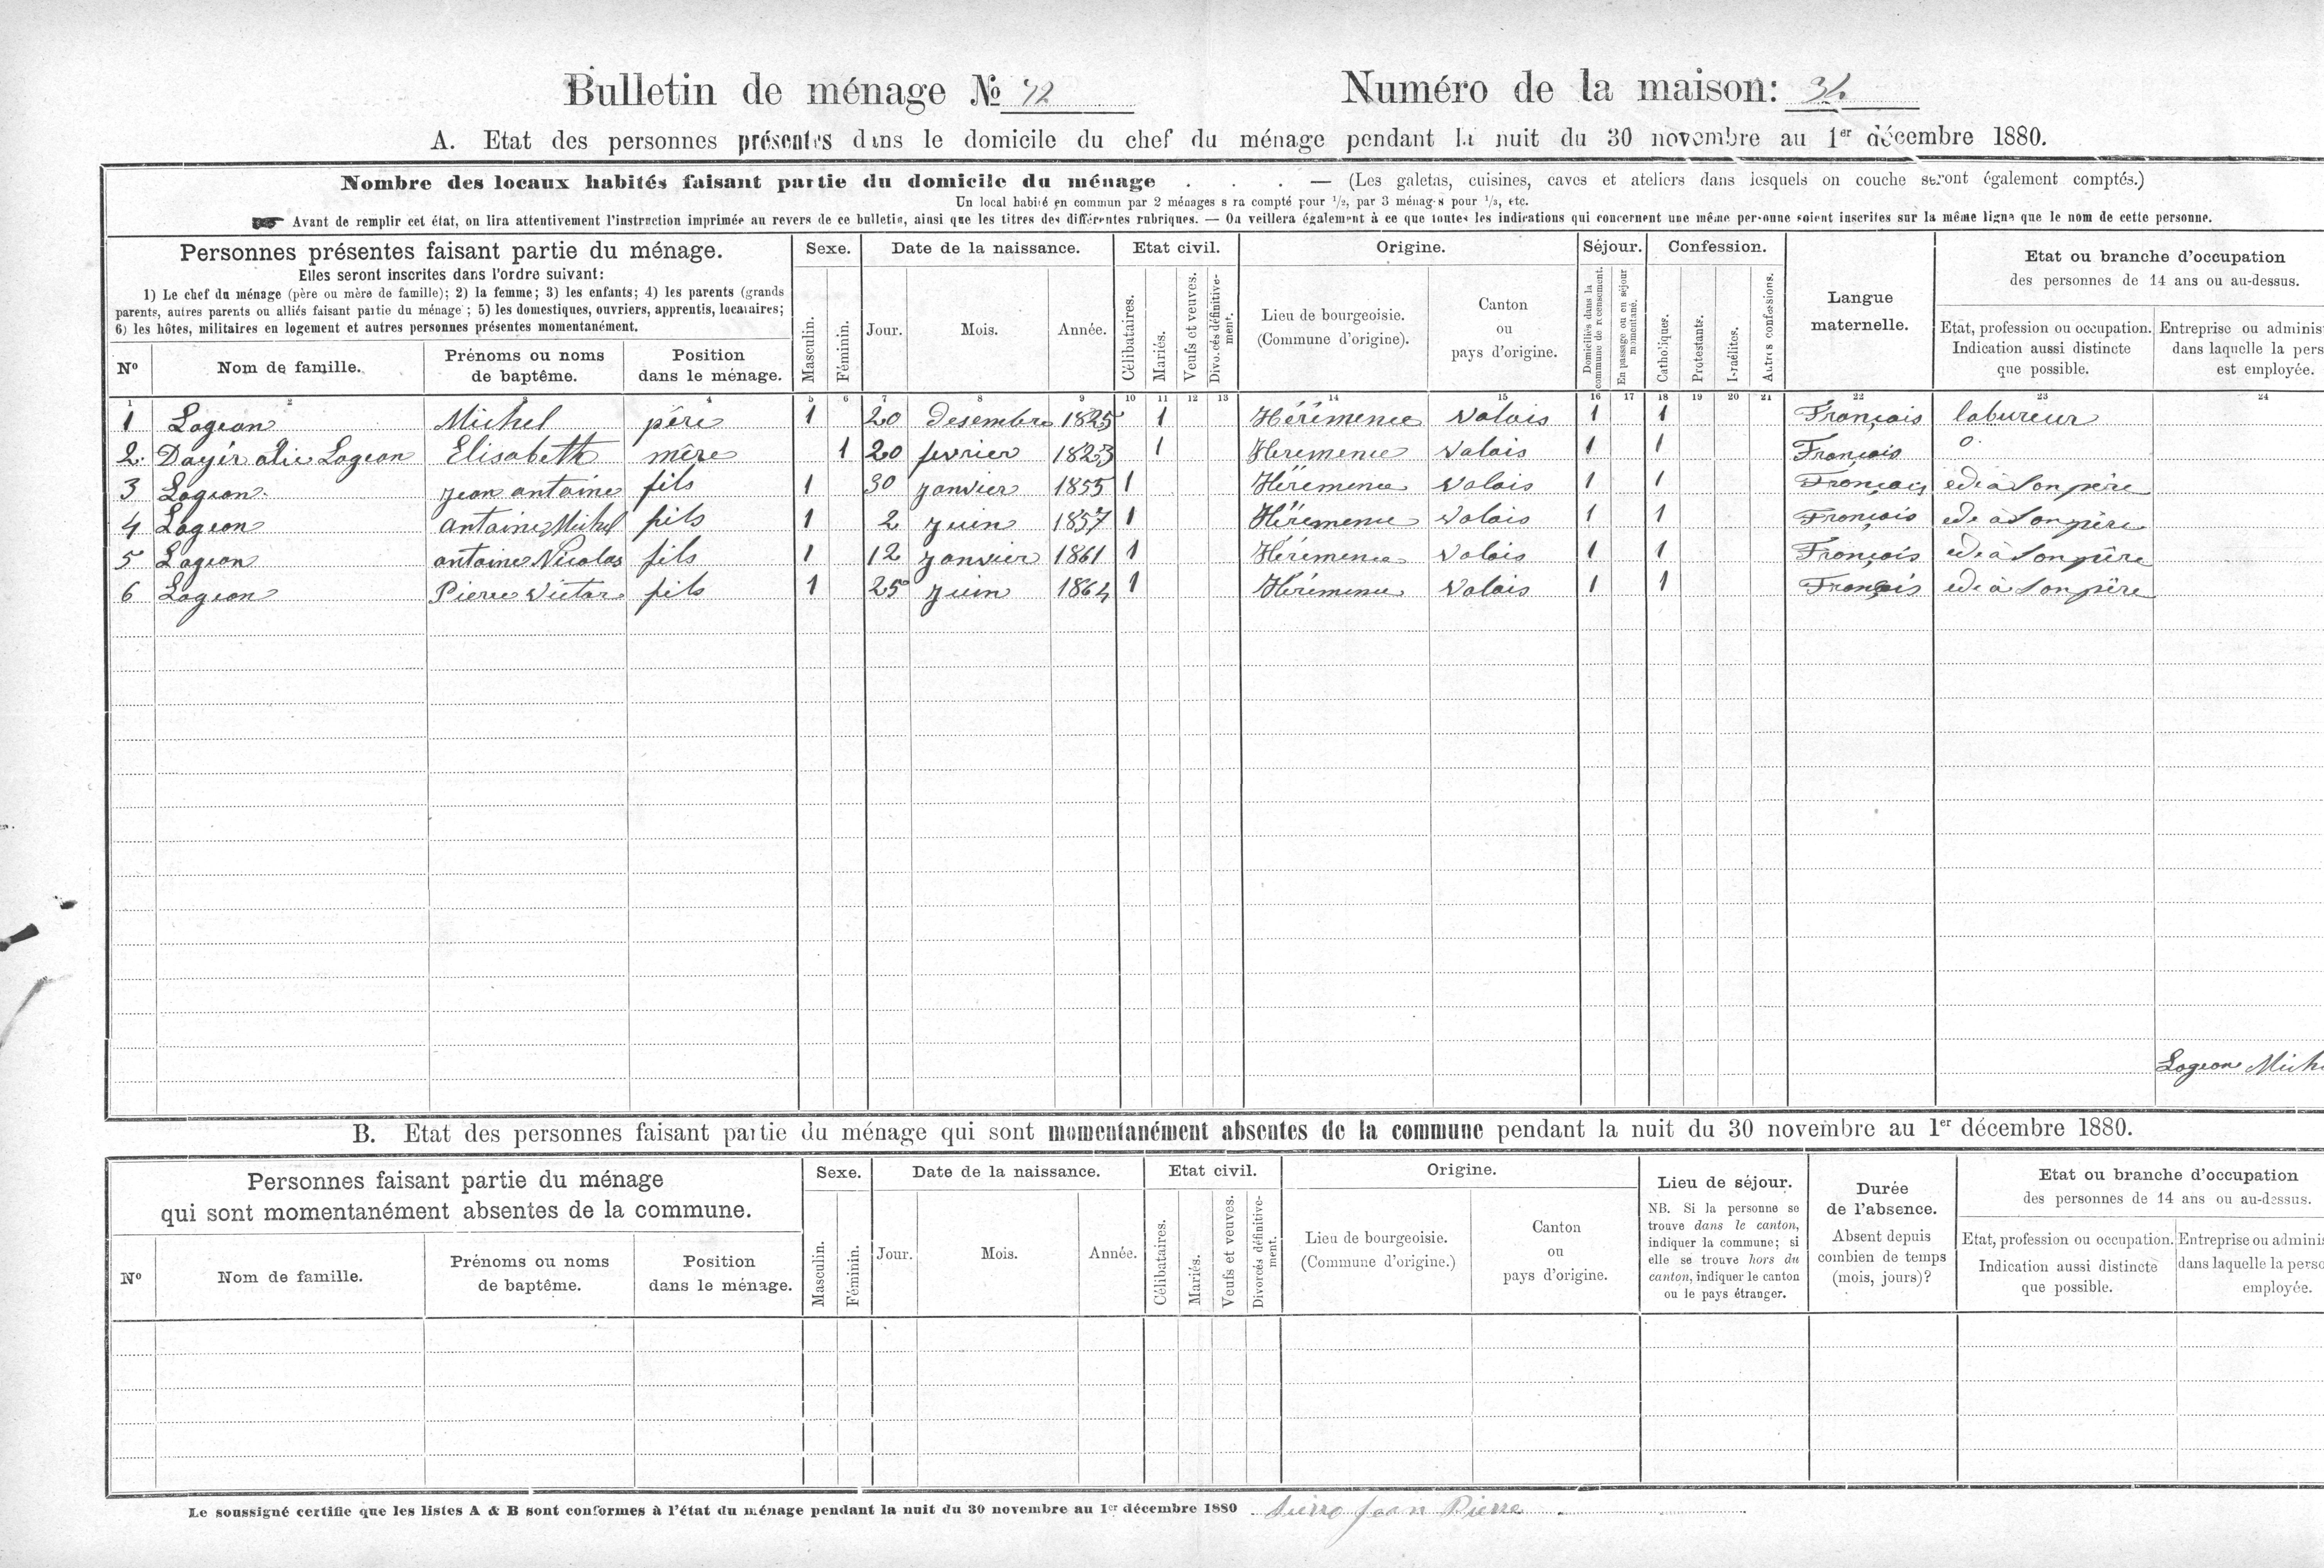 Bulletin de ménage № 72 Numéro de la maison: 34
A. Etat des personnes présentes dans le domicile du chef du ménage pendant la nuit du 30 novembre au 1er décembre 1880.
Nombre des locaux habités faisant partie du domicile du ménage . . . — (Les galetas, cuisines, caves et ateliers dans lesquels on couche seront également comptés.)
Un local habité en commun par 2 ménages sera compté pour 1/2, par 3 ménages pour 1/3, etc.
Avant de remplir cet état, on lira attentivement l'instruction imprimée au revers de ce bulletin, ainsi que les titres des différentes rubriques. — On veillera également à ce que toutes les indications qui concernent une même personne soient inscrites sur la même ligne que le nom de cette personne.
Personnes présentes faisant partie du ménage.
Elles seront inscrites dans l'ordre suivant:
1) Le chef du ménage (père ou mère de famille); 2) la femme; 3) les enfants; 4) les parents (grands
parents, autres parents ou alliés faisant partie du ménage; 5) les domestiques, ouvriers, apprentis, locataires;
6) les hôtes, militaires en logement et autres personnes présentes momentanément.
Nº
Nom de famille.
Prénoms ou noms
de baptême.
Position
dans le ménage.
Sexe.
Masculin.
Féminin.
Date de la naissance.
Jour.
Mois.
Année.
Etat civil.
Célibataires.
Mariés.
Veufs et veuves.
Divorcés définitive-
ment.
Origine.
Lieu de bourgeoisie.
(Commune d'origine).
Canton
ou
pays d'origine.
Séjour.
Domiciliés dans la
commune de recensement.
En passage ou en séjour
momentané.
Confession.
Catholiques.
Protestants.
Israélites.
Autres confessions.
Langue
maternelle.
Etat ou branche d'occupation
des personnes de 14 ans ou au-dessus.
Etat, profession ou occupation.
Indication aussi distincte
que possible.
Entreprise ou adminis
dans laquelle la pers
est employée.
1 2 3 4 5 6 7 8 9 10 11 12 13 14 15 16 17 18 19 20 21 22 23 24
1 Logean Michel père 1 20 desembre 1825 1 Hérémence Valais 1 1 Français labureur
2 Dayér alié Logean Elisabeth mère 1 20 fevrier 1823 1 Hérémence Valais 1 1 Français 0
3 Logean jean antoine fils 1 30 janvier 1855 1 Hérémence Valais 1 1 Français ede à son père
4 Logean antoine Michel fils 1 2 juin 1857 1 Hérémence Valais 1 1 Français ede à son père
5 Logean antoine Nicolas fils 1 12 janvier 1861 1 Hérémence Valais 1 1 Français ede à son père
6 Logean Pierre Victor fils 1 25 juin 1864 1 Hérémence Valais 1 1 Français ede à son père
Logean Mich
B. Etat des personnes faisant partie du ménage qui sont momentanément absentes de la commune pendant la nuit du 30 novembre au 1er décembre 1880.
Personnes faisant partie du ménage
qui sont momentanément absentes de la commune.
Nº
Nom de famille.
Prénoms ou noms
de baptême.
Position
dans le ménage.
Sexe.
Masculin.
Féminin.
Date de la naissance.
Jour.
Mois.
Année.
Etat civil.
Célibataires.
Mariés.
Veufs et veuves.
Divorcés définitive-
ment.
Origine.
Lieu de bourgeoisie.
(Commune d'origine.)
Canton
ou
pays d'origine.
Lieu de séjour.
NB. Si la personne se
trouve dans le canton,
indiquer la commune; si
elle se trouve hors du
canton, indiquer le canton
ou le pays étranger.
Durée
de l'absence.
Absent depuis
combien de temps
(mois, jours)?
Etat ou branche d'occupation
des personnes de 14 ans ou au-dessus.
Etat, profession ou occupation.
Indication aussi distincte
que possible.
Entreprise ou adminis
dans laquelle la perso
employée.
Le soussigné certifie que les listes A & B sont conformes à l'état du ménage pendant la nuit du 30 novembre au 1er décembre 1880 Jean Pierre